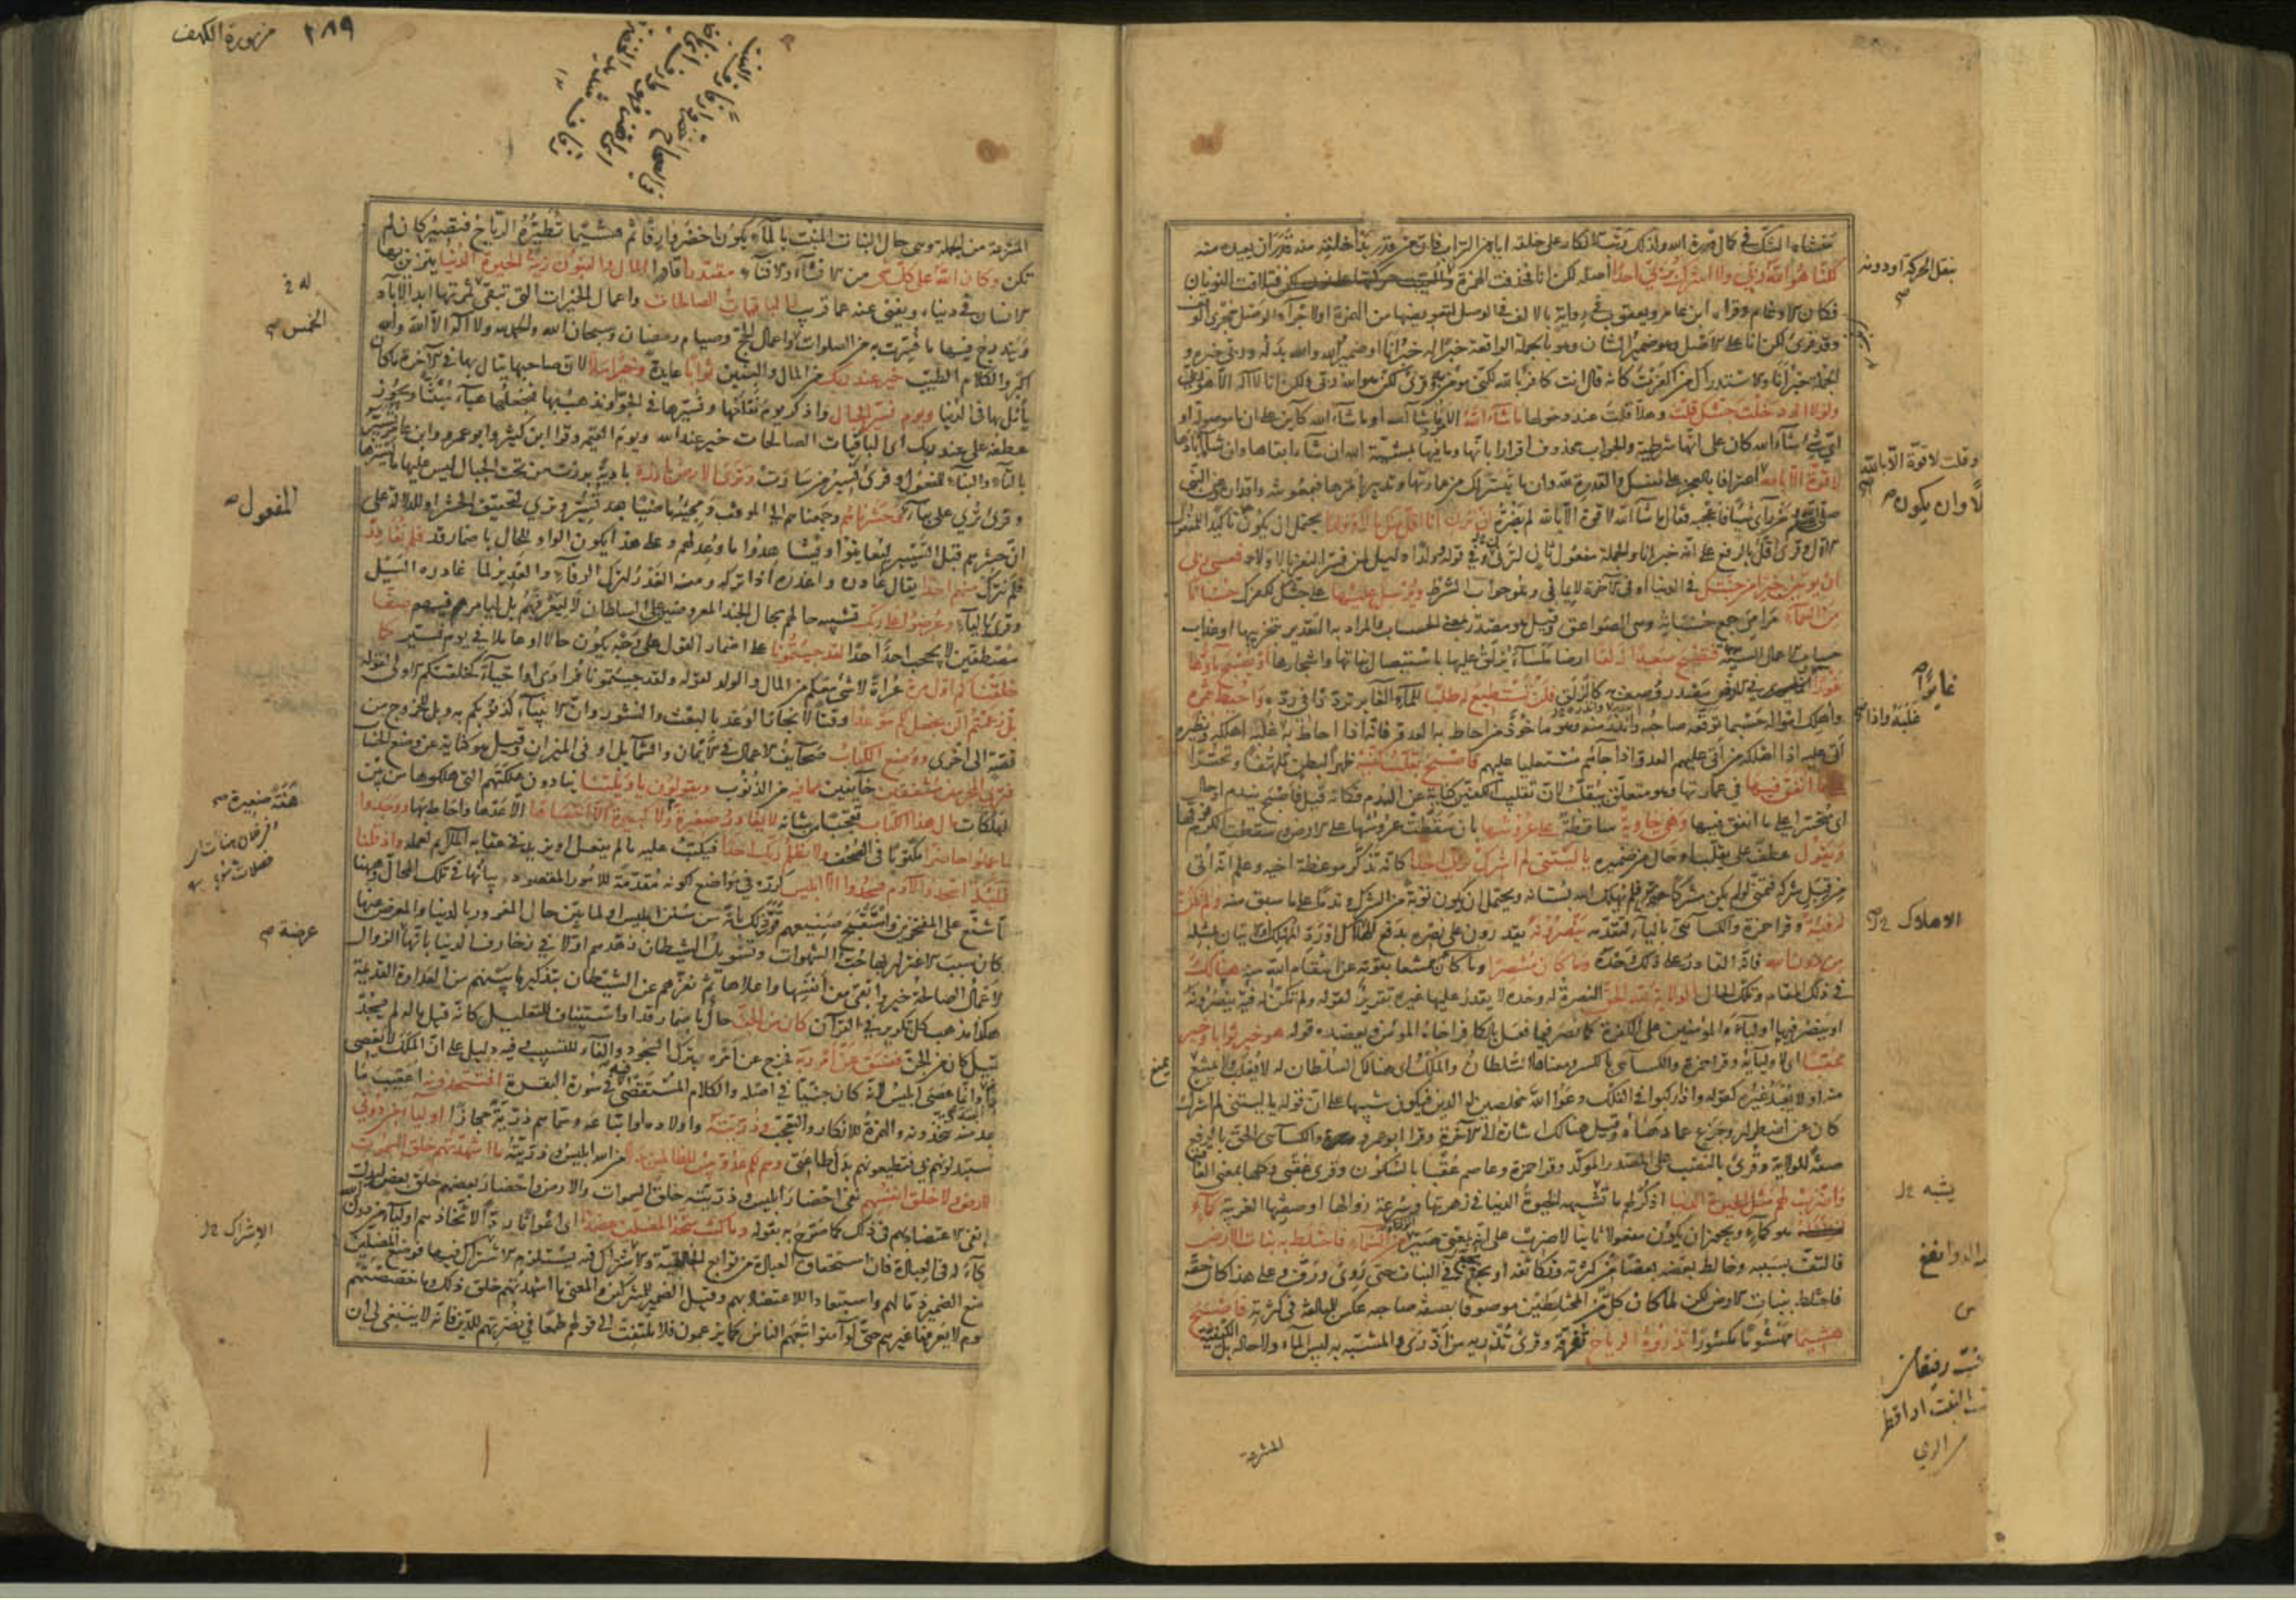 منشاه الشك في كمال قدرة الله ولذلك رتب الانكار على خلقه اياه من التراب فان من قدر بدأ خلقه منه قدر ان يعيده منه
لكنا هو الله ربي ولا اشرك بربي احدا اصله لكن انا فحذفت الهمزة والقيت حركتها على نون لكن فتلاقت النونان
فكان الادغام وقراء ابن عامر ويعقوب في رواية بالالف في الوصل لتعويضها من الهمزة او لاجراء الوصل مجرى الوقف
وقد قرئ لكن انا على الاصل وهو ضمير الشان وهو بالجملة الواقعة خبرا له خبر انا او ضمير الله والله بدله وربي خبره و
الجملة خبر انا والاستدراك من اكفرت كانه قال انت كافر بالله لكني مؤمن به وقرئ لكن هو الله ربي ولكن انا لا اله الا هو ربي
ولولا اذ دخلت جنتك قلت وهلا قلت عند دخولها ما شاء الله الامر ما شاء الله او ما شاء الله كاين على ان ما موصولة او
اي شئ شاء الله كان على انها شرطية والجواب محذوف اقرارا بانها وما فيها بمشية الله ان شاء ابقاها وان شاء ابادها
لا قوة الا بالله اعترافا بالعجز على نفسك والقدرة لله وان ما تيسر لك من عمارتها وتدبير امرها فبمعونته واقداره وعن النبي
صلى الله عليه من رأى شيئا فاعجبه فقال ما شاء الله لا قوة الا بالله لم يضره ان ترن انا اقل منك مالا وولدا يحتمل ان يكون تاكيدا للمفعول
الاول وقرئ اقل بالرفع على انه خبر انا والجملة مفعول ثاني لترني وفي قوله وولدا دليل لمن فسر النفر بالاولاد فعسى ربي
ان يؤتين خيرا من جنتك في الدنيا او في الاخرة لايماني وهو جواب الشرط ويرسل عليها على جنتك لكفرك حسبانا
من السماء مرامي جمع حسبانة وهي الصواعق وقيل هو مصدر بمعنى الحساب والمراد به التقدير بتخريبها او عذاب
حساب الاعمال السيئة فتصبح صعيدا زلقا ارضا ملساء يزلق عليها باستيصال نباتها واشجارها او يصبح ماؤها
غورا في الارض مصدر وصف به كالزلق فلن تستطيع له طلبا للماء الغاير ترددا في رده واحيط بثمره
واهلك امواله حسبما توقعه صاحبه وانذره منه وهو ماخوذ من احاط به العدو فانه اذا احاط به غلبه اهلكه ونظيره
اتى عليه اذا اهلكه من اتى عليهم العدو اذا جاءهم مستعليا عليهم فاصبح يقلب كفيه ظهرا لبطن تلهفا وتحسرا
على ما انفق فيها في عمارتها وهو متعلق بيقلب لان تقليب الكفين كناية عن الندم فكانه قيل فاصبح يندم او حال
اي متحسرا على ما انفق فيها وهي خاوية ساقطة على عروشها بان سقطت عروشها على الارض وسقطت الكروم فوقها
ويقول عطف على يقلب او حال من ضميره يا ليتني لم اشرك بربي احدا كانه تذكر موعظة اخيه وعلم انه اتي
من قبل شركه فتمنى لو لم يكن مشركا فلم يهلك الله بستانه ويحتمل ان يكون توبة من الشرك وندما على ما سبق منه ولم تكن
له فئة وقرا حمزة والكسائي بالياء لتقدمه ينصرونه يقدرون على نصره بدفع الاهلاك او رد المهلك او الاتيان بمثله
من دون الله فانه القادر على ذلك وحده وما كان منتصرا وما كان ممتنعا بقوته عن انتقام الله منه هنالك
في ذلك المقام وتلك الحال الولاية لله الحق النصرة له وحده لا يقدر عليها غيره تقرير لقوله ولم تكن له فئة ينصرونه
او ينصر فيها اولياءه المؤمنين على الكفرة كما نصر فيما فعل بالكافر اخاه المؤمن ويعضده قوله هو خير ثوابا وخير
عقبا اي لاوليائه وقرا حمزة والكسائي بالكسر ومعناها السلطان والملك اي هنالك السلطان له لا يغلب ولا يمتنع
منه او لا يعبد غيره كقوله واذا ركبوا في الفلك دعوا الله مخلصين له الدين فيكون تنبيها على ان قوله يا ليتني لم اشرك
كان عن اضطرار وجزع عما دهاه وقيل هنالك اشارة الى الاخرة وقرا ابو عمرو والكسائي الحق بالرفع
صفة للولاية وقرئ بالنصب على المصدر المؤكد وقرا حمزة وعاصم عقبا بالسكون وقرئ عقبى وكلها بمعنى العاقبة
واضرب لهم مثل الحيوة الدنيا اذكر لهم ما تشبهه الحيوة الدنيا في زهرتها وسرعة زوالها او صفتها الغريبة كماء
هو كماء ويجوز ان يكون مفعولا ثانيا لاضرب على انه بمعنى صير انزلناه من السماء فاختلط به نبات الارض
فالتفت بسببه وخالط بعضه بعضا من كثرته وتكاثفه او نجع في النبات حتى روي ورف وعلى هذا كان حقه
فاختلط بنبات الارض لكن لما كان كل من المختلطين موصوفا بصفة صاحبه عكس للمبالغة في كثرته فاصبح
هشيما مهشوما مكسورا تذروه الرياح تفرقه وقرئ تذريه من اذرى والمشبه به ليس الماء ولا حاله بل الكيفية
بنقل الحركة او دونه
وقلت لا قوة الا بالله
لا وان يكون
غايرا
غلبه واذا
الاهلاك
يمتنع
يشبه
المنتزعة
٢٨٩ من سورة الكهف
المنتزعة من الجملة وهي حال النبات المنبت بالماء يكون اخضر وارفا ثم هشيما تطيره الرياح فتصير كان لم
تكن وكان الله على كل شئ من الانشاء والافناء مقتدرا قادرا المال والبنون زينة الحيوة الدنيا يتزين بها
الانسان في دنياه ويفنى عنه عما قريب والباقيات الصالحات واعمال الخيرات التي تبقى ثمرتها ابد الآباد
ويندرج فيها ما فسرت به من الصلوات واعمال الحج وصيام رمضان وسبحان الله والحمد لله ولا اله الا الله والله
اكبر والكلام الطيب خير عند ربك من المال والبنين ثوابا عايدة وخير املا لان صاحبها ينال بها في الاخرة ما كان
يأمل بها في الدنيا ويوم نسير الجبال واذكر يوم نقلعها ونسيرها في الجو او نذهب بها فنجعلها هباء منبثا ويجوز
عطفه على عند ربك اي الباقيات الصالحات خير عند الله ويوم القيمة وقرا ابن كثير وابو عمرو وابن عامر تسير
بالتاء والبناء للمفعول وقرئ تسير من سارت وترى الارض بارزة بادية برزت من تحت الجبال ليس عليها ما يسترها
وقرئ ترى على بناء وحشرناهم وجمعناهم الى الموقف ومجيئه ماضيا بعد نسير وترى لتحقيق الحشر او للدلالة على
ان حشرهم قبل التسيير ليعاينوا ويشاهدوا ما وعد لهم وعلى هذا يكون الواو للحال باضمار قد فلم نغادر
فلم نترك منهم احدا يقال غادره واغدره اذا تركه ومنه الغدر لترك الوفاء والغدير لما غادره السيل
وقرئ بالياء وعرضوا على ربك تشبيه حالهم بحال الجند المعروضين على السلطان لا ليعرفهم بل ليأمر فيهم صفا
مصطفين لا يحجب احد احدا لقد جئتمونا على اضمار القول على وجه يكون حالا او عاملا في يوم نسير كما
خلقناكم اول مرة عراة لا شئ معكم من المال والولد لقوله ولقد جئتمونا فرادى او احياء كخلقتكم الاولى لقوله
بل زعمتم الن نجعل لكم موعدا وقتا لانجاز الوعد بالبعث والنشور وان الانبياء كذبوكم به وبل للخروج من
قصة الى اخرى ووضع الكتاب صحايف الاعمال في الايمان والشمايل او في الميزان وقيل هو كناية عن وضع الحساب
فترى المجرمين مشفقين خائفين مما فيه من الذنوب ويقولون يا ويلتنا ينادون هلكتهم التي هلكوها من بين
الهلكات مال هذا الكتاب تعجبا من شانه لا يغادر صغيرة ولا كبيرة الا احصاها الا عدها واحاط بها ووجدوا
ما عملوا حاضرا مكتوبا في الصحف ولا يظلم ربك احدا فيكتب عليه ما لم يفعل او يزيد في عقابه الملائم لعمله واذ قلنا
للملائكة اسجدوا لآدم فسجدوا الا ابليس كرره في مواضع لكونه مقدمة للامور المقصود بيانها في تلك المحال وههنا
لما شنع على المفتخرين واستقبح صنيعهم قرر ذلك بانه من سنن ابليس او لما بين حال المغرور بالدنيا والمعرض عنها
كان سبب الاغترار بها حب الشهوات وتسويل الشيطان زهدهم اولا في زخارف الدنيا بانها عرضة الزوال
والاعمال الصالحة خير وابقى من انفسها واعلاها ثم نفرهم عن الشيطان بتذكير ما بينهم من العداوة القديمة
هكذا مذهب كل تكرير في القرآن كان من الجن حال باضمار قد او استيناف للتعليل كانه قيل ما له لم يسجد
فقيل كان من الجن ففسق عن امر ربه فخرج عن امره بترك السجود والفاء للتسبب وفيه دليل على ان الملك لا يعصي
وانما عصى ابليس لانه كان جنيا في اصله والكلام المستقصى فيه في سورة البقرة افتتخذونه اعقيب ما
وجد منه تتخذونه والهمزة للانكار والتعجب وذريته واولاده او اتباعه وسماهم ذريته مجازا اولياء من دوني
فتستبدلونهم بي فتطيعونهم بدل طاعتي وهم لكم عدو بئس للظالمين بدلا من الله ابليس وذريته ما اشهدتهم خلق السموات
والارض ولا خلق انفسهم نفي احضار ابليس وذريته خلق السموات والارض واحضار بعضهم خلق بعض ليدل
على نفي الاعتضاد بهم في ذلك كما صرح به بقوله وما كنت متخذ المضلين عضدا اي اعوانا ردا لاتخاذهم اولياء من دون الله
شركاء له في العبادة فان استحقاق العبادة من توابع الخالقية والاشتراك فيه يستلزم الاشتراك فيها فوضع المضلين
موضع الضمير ذما لهم واستبعادا للاعتضاد بهم وقيل الضمير للمشركين والمعنى ما اشهدتهم خلق ذلك وما خصصتهم
بعلوم لا يعرفها غيرهم حتى لو آمنوا اتبعهم الناس كما يزعمون فلا تلتفت الى قولهم طمعا في نصرتهم للدين فانه لا ينبغي لي ان
له في
الخمس
المفعول
هنة صغيرة
عرضة
الاشراك